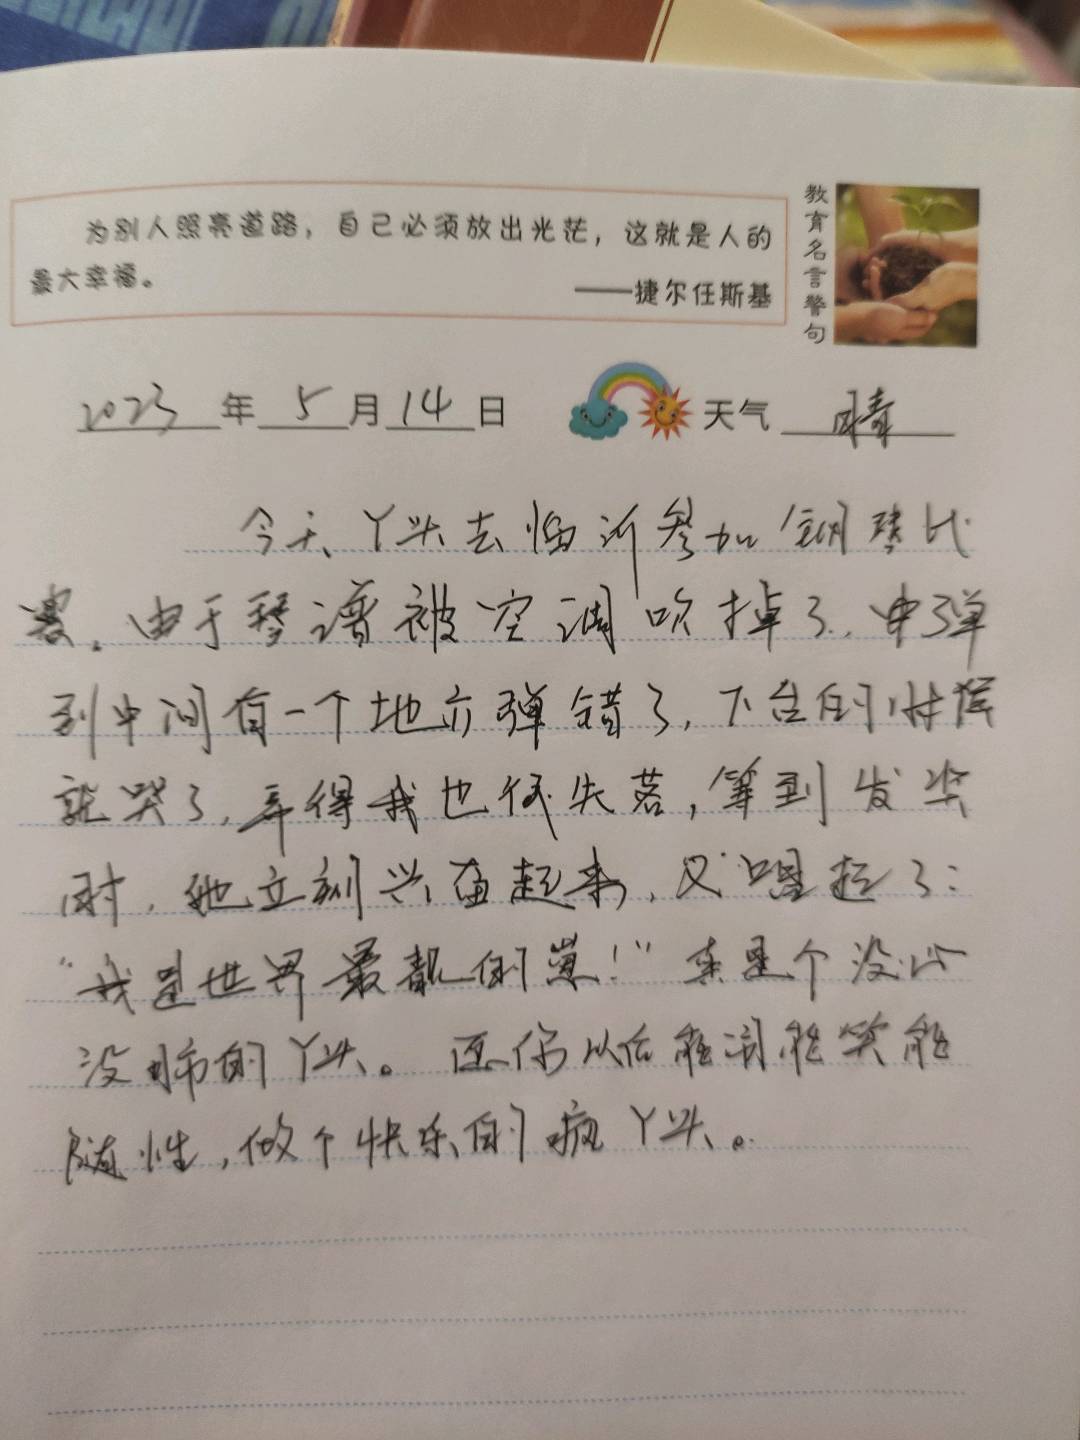 为别人照亮道路，自己必须放出光茫，这就是人的
最大幸福。
——捷尔任斯基
教育名言警句
2023年5月14日 天气 晴
今天丫头去临沂参加钢琴比
赛。由于琴谱被空调吹掉了，弹
到中间有一个地方弹错了，下台的时候
就哭了，弄得我也很失落，等到发奖
时，她立刻兴奋起来，又嘚瑟了：
“我是世界最靓的崽！”真是个没心
没肺的丫头。愿你以后能闹能笑能
随性，做个快乐的疯丫头。